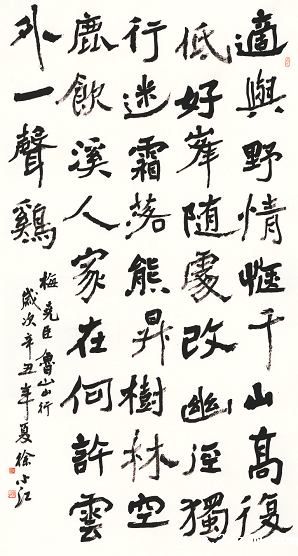 適與野情惬千山高復
低好峯随處改幽徑獨
行迷霜落熊昇樹林空
鹿飲溪人家在何許雲
外一聲鷄
梅堯臣魯山山行
歲次辛丑年夏徐小江